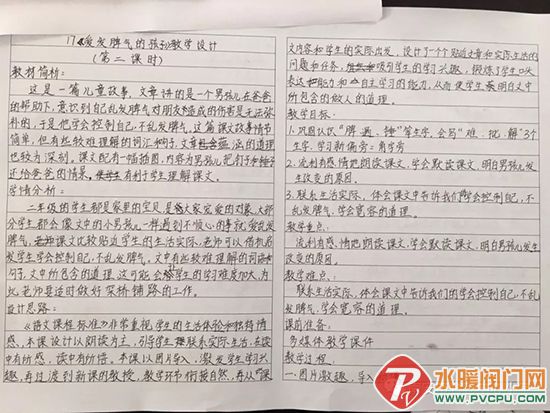 17《爱发脾气的孩子》教学设计
（第二课时）
教材简析：
这是一篇儿童故事，文章讲的是一个男孩儿在爸爸
的帮助下，意识到自己乱发脾气对朋友造成的伤害是无法弥
补的，于是他学会控制自己，不乱发脾气，这篇课文故事情节
简单，但有些较难理解的词汇和句子，文章蕴涵的道理
也较为深刻。课文配有一幅插图，内容为男孩儿把钉子和锤子
还给爸爸的情景，有利于学生理解课文。
学情分析：
二年级的学生都是家里的宝贝，是大家宠爱的对象，大部
分学生都会像文中的小男孩儿一样遇到不顺心的事就爱乱发
脾气，课文比较贴近学生的生活实际，老师可以借机启
发学生学会控制自己，不乱发脾气，文中有些较难理解的词语和
句子，文中所包含的道理，这可能会学生的学习难度加大，为
此老师要适时做好架桥铺路的工作。
设计思路：
《语文课程标准》非常重视学生的生活体验和独特情
感，本课设计以朗读为主，引导学生联系实际生活，在读
中有所感，读中有所悟。本课以图片导入，激发学生学习兴
趣，再过渡到新课的教授，教学环节衔接自然，再从课
文内容和学生的实际出发，设计了一个个贴近文章和实际生活的
问题和任务，吸引学生的学习兴趣，锻炼了学生口头
表达能力和自主学习的能力，从而使学生最明白文中
所包含的做人的道理。
教学目标：
1. 巩固认识“脾、遇、锤”等生字，会写“难、批、解”3个
生字，学习新偏旁：角字旁
2. 流利有感情地朗读课文，学会默读课文，明白男孩儿发
生改变的原因。
3. 联系生活实际，体会课文中告诉我们学会控制自己，不
乱发脾气，学会宽容的道理。
教学重点：
流利有感情地朗读课文，学会默读课文，明白男孩儿发生
改变的原因。
教学难点：
联系生活实际，体会课文中告诉我们的学会控制自己，不乱
发脾气，学会宽容的道理。
课前准备：
多媒体教学课件
教学过程：
一.图片激趣，导入
水暖阀门网
WWW.PVCPU.COM